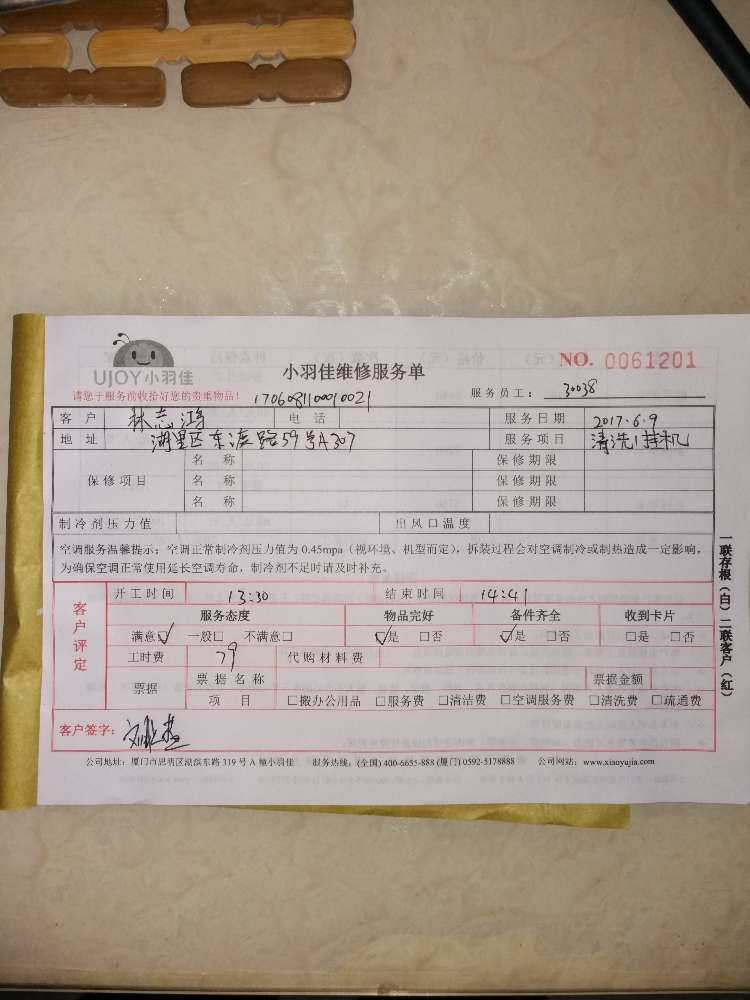 UJOY小羽佳
小羽佳维修服务单
NO. 0061201
请您于服务前收拾好您的贵重物品！
1706081100010021
服务员工： 30038
客 户 林志鸿 电 话 服务日期 2017.6.9
地 址 湖里区东渡路59号A307 服务项目 清洗1挂机
保修项目 名 称 保修期限
名 称 保修期限
名 称 保修期限
制冷剂压力值 出风口温度
空调服务温馨提示：空调正常制冷剂压力值为 0.45mpa（视环境、机型而定），拆装过程会对空调制冷或制热造成一定影响，
为确保空调正常使用延长空调寿命，制冷剂不足时请及时补充。
客户评定
开工时间 13:30 结束时间 14:41
服务态度 物品完好 备件齐全 收到卡片
满意☑ 一般□ 不满意□ ☑是 □否 ☑是 □否 □是 □否
工时费 79 代购材料费
票据 票据名称 票据金额
项 目 □搬办公用品 □服务费 □清洁费 □空调服务费 □清洗费 □疏通费
客户签字：
公司地址：厦门市思明区湖滨东路 319 号 A 幢小羽佳 服务热线：(全国) 400-6655-888 (厦门) 0592-5178888 公司网站：www.xiaoyujia.com
一联存根（白）二联客户（红）